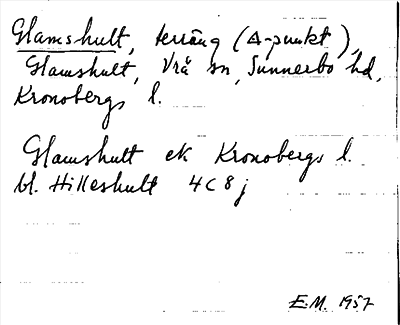 Glamshult, terräng (Δ-punkt),
Glamshult, Vrå sn, Sunnerbo hd,
Kronobergs l.
Glamshult ek Kronobergs l.
bl. Hilleshult 4C8j
E.M. 1957